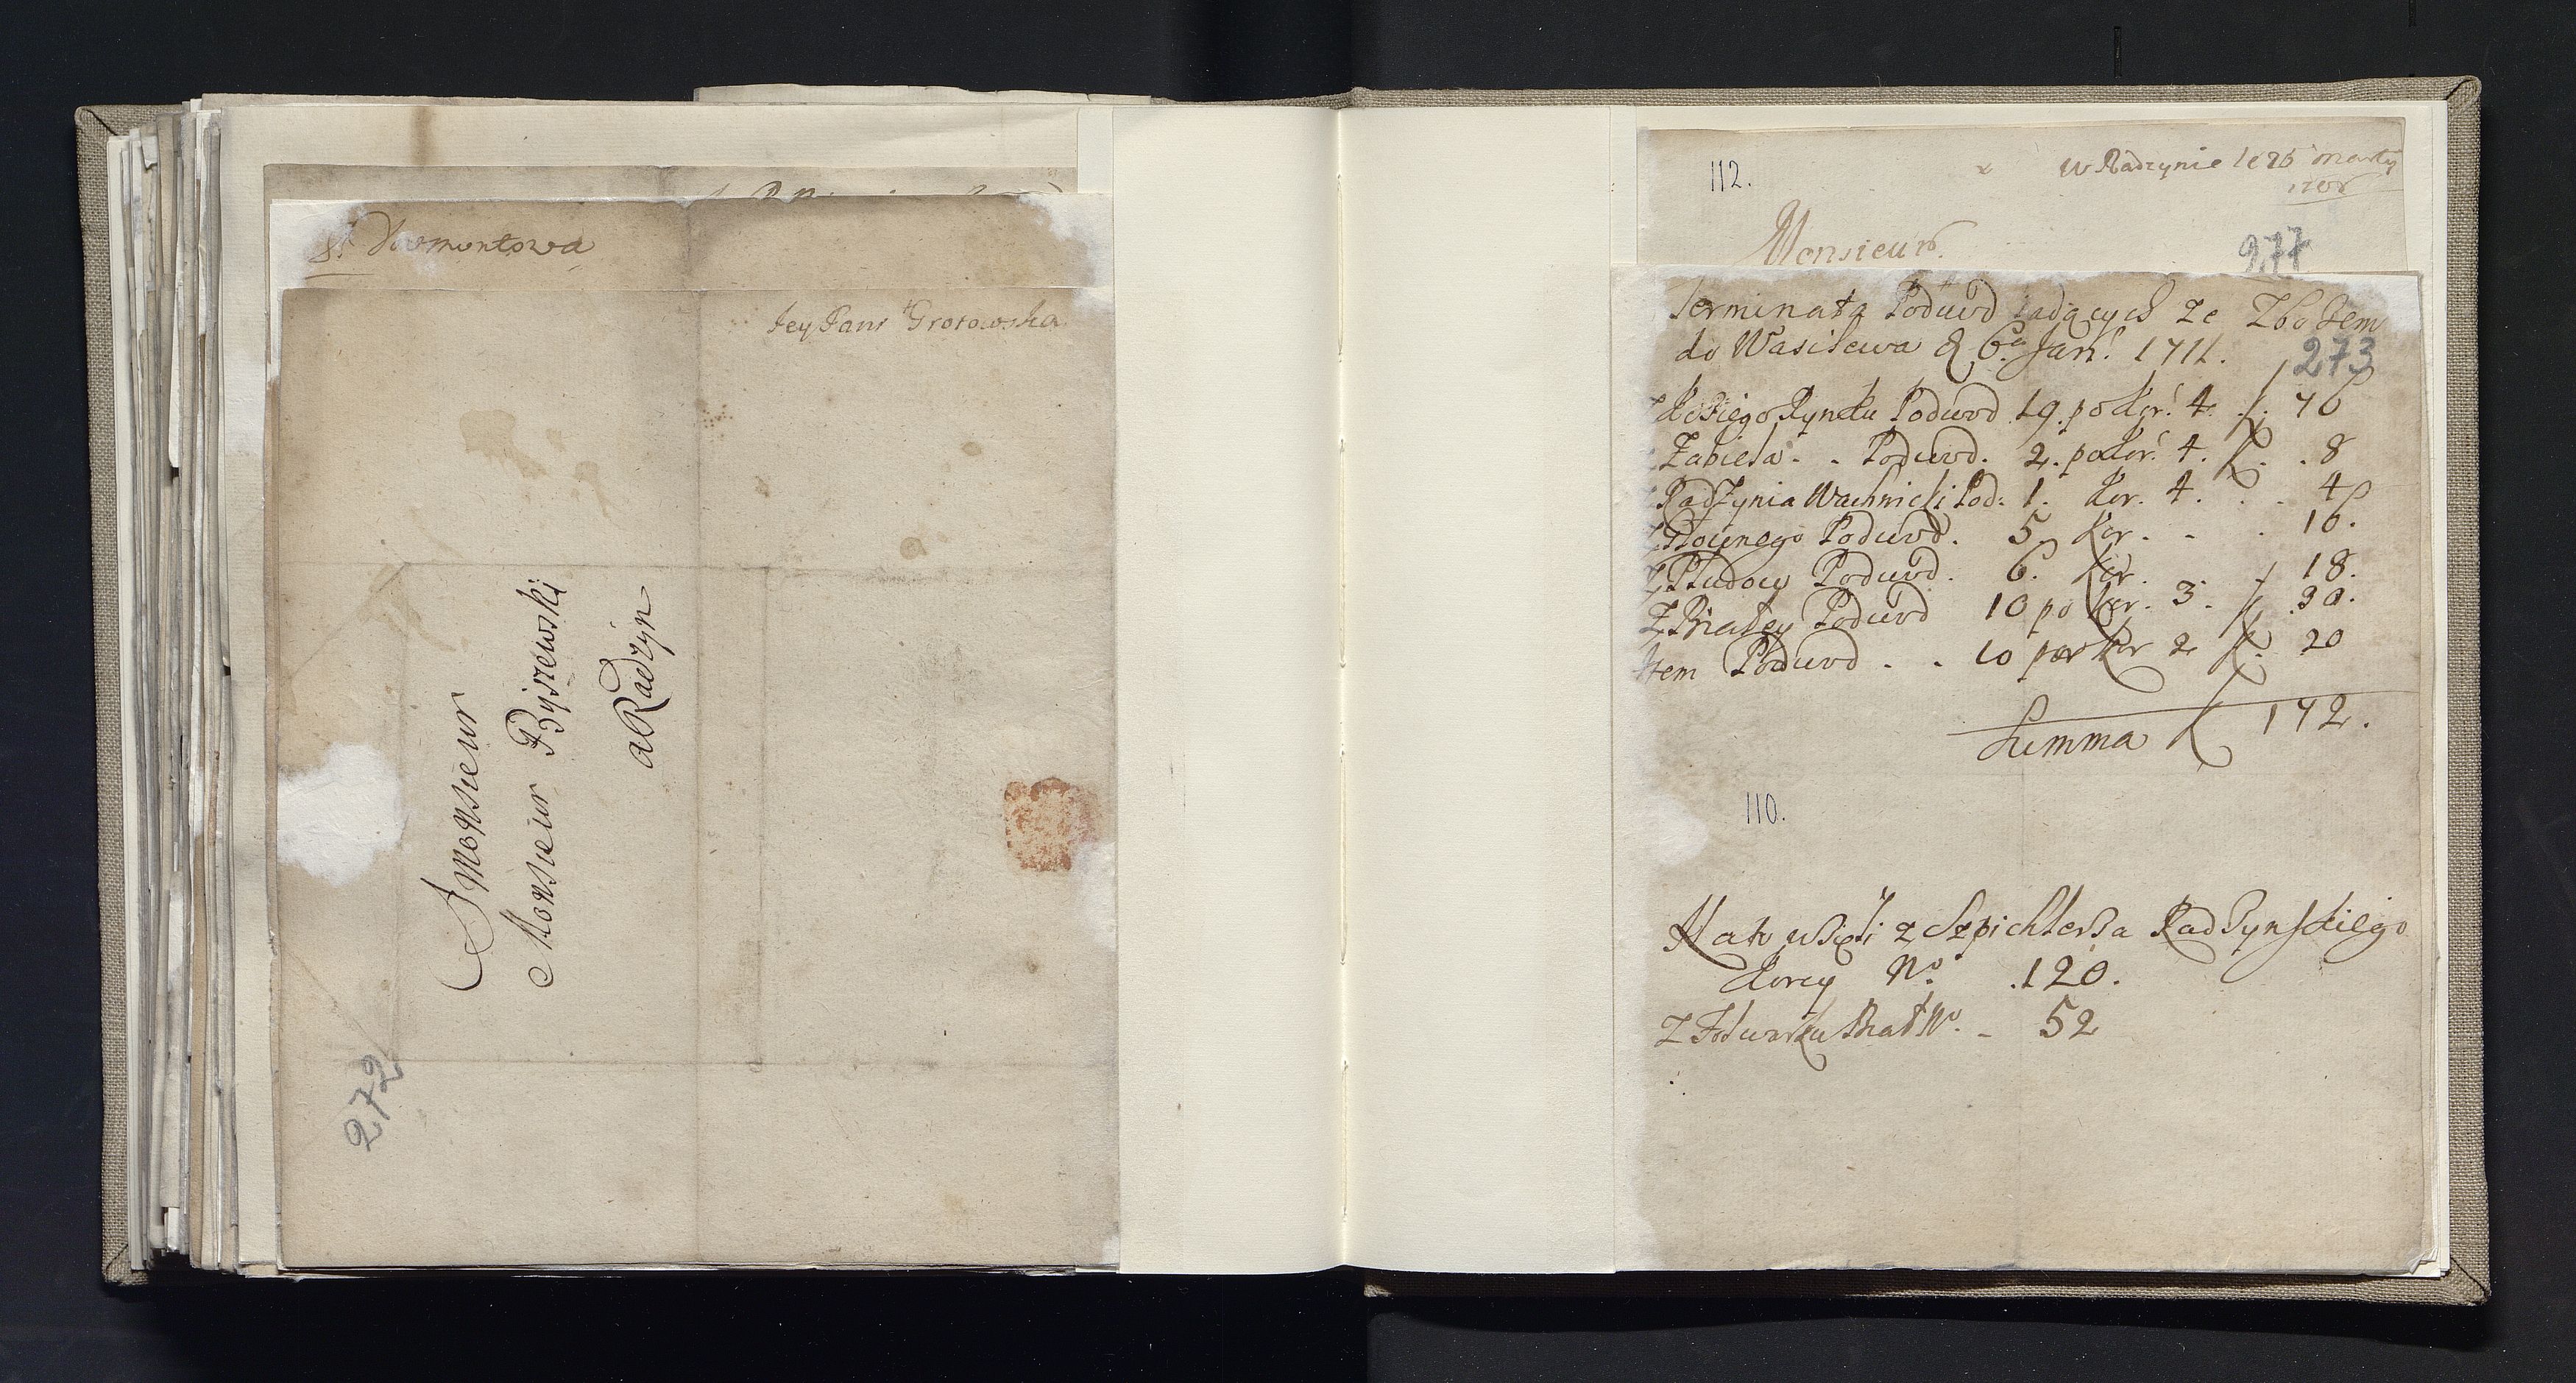 Dowmontowa
Jey Pani Grotowska
A Monsieur
Monsieur Byszewski
a Radzyn
272
112.
w Radzynie le 26 martij
Monsieur.
277
Terminata Podwod jadących ze Zbożem
do Wasilewa d 6ta Jan: 1711.
273
Z Koziego Rynku Podwod 19. po Kor: 4. 76
Zabiela - - Podwod. 2. po Kor: 4. K. . 8
Radzynia Wachnicki Pod: 1. Kor. 4. . . 4
Z Głownego Podwod. 5. Kor. - . 16.
Z Płudow Podwod. 6. Kor. 18.
Z Białey Podwod 10 po Kor. 3. K 30.
Item Podwod - - 10 per Kor 2 K. 20
Summa K 172.
110.
Nato wzięli z Szpichlerza Radzynskiego
Korcy No .120.
Z Folwarku Biał No. - 52